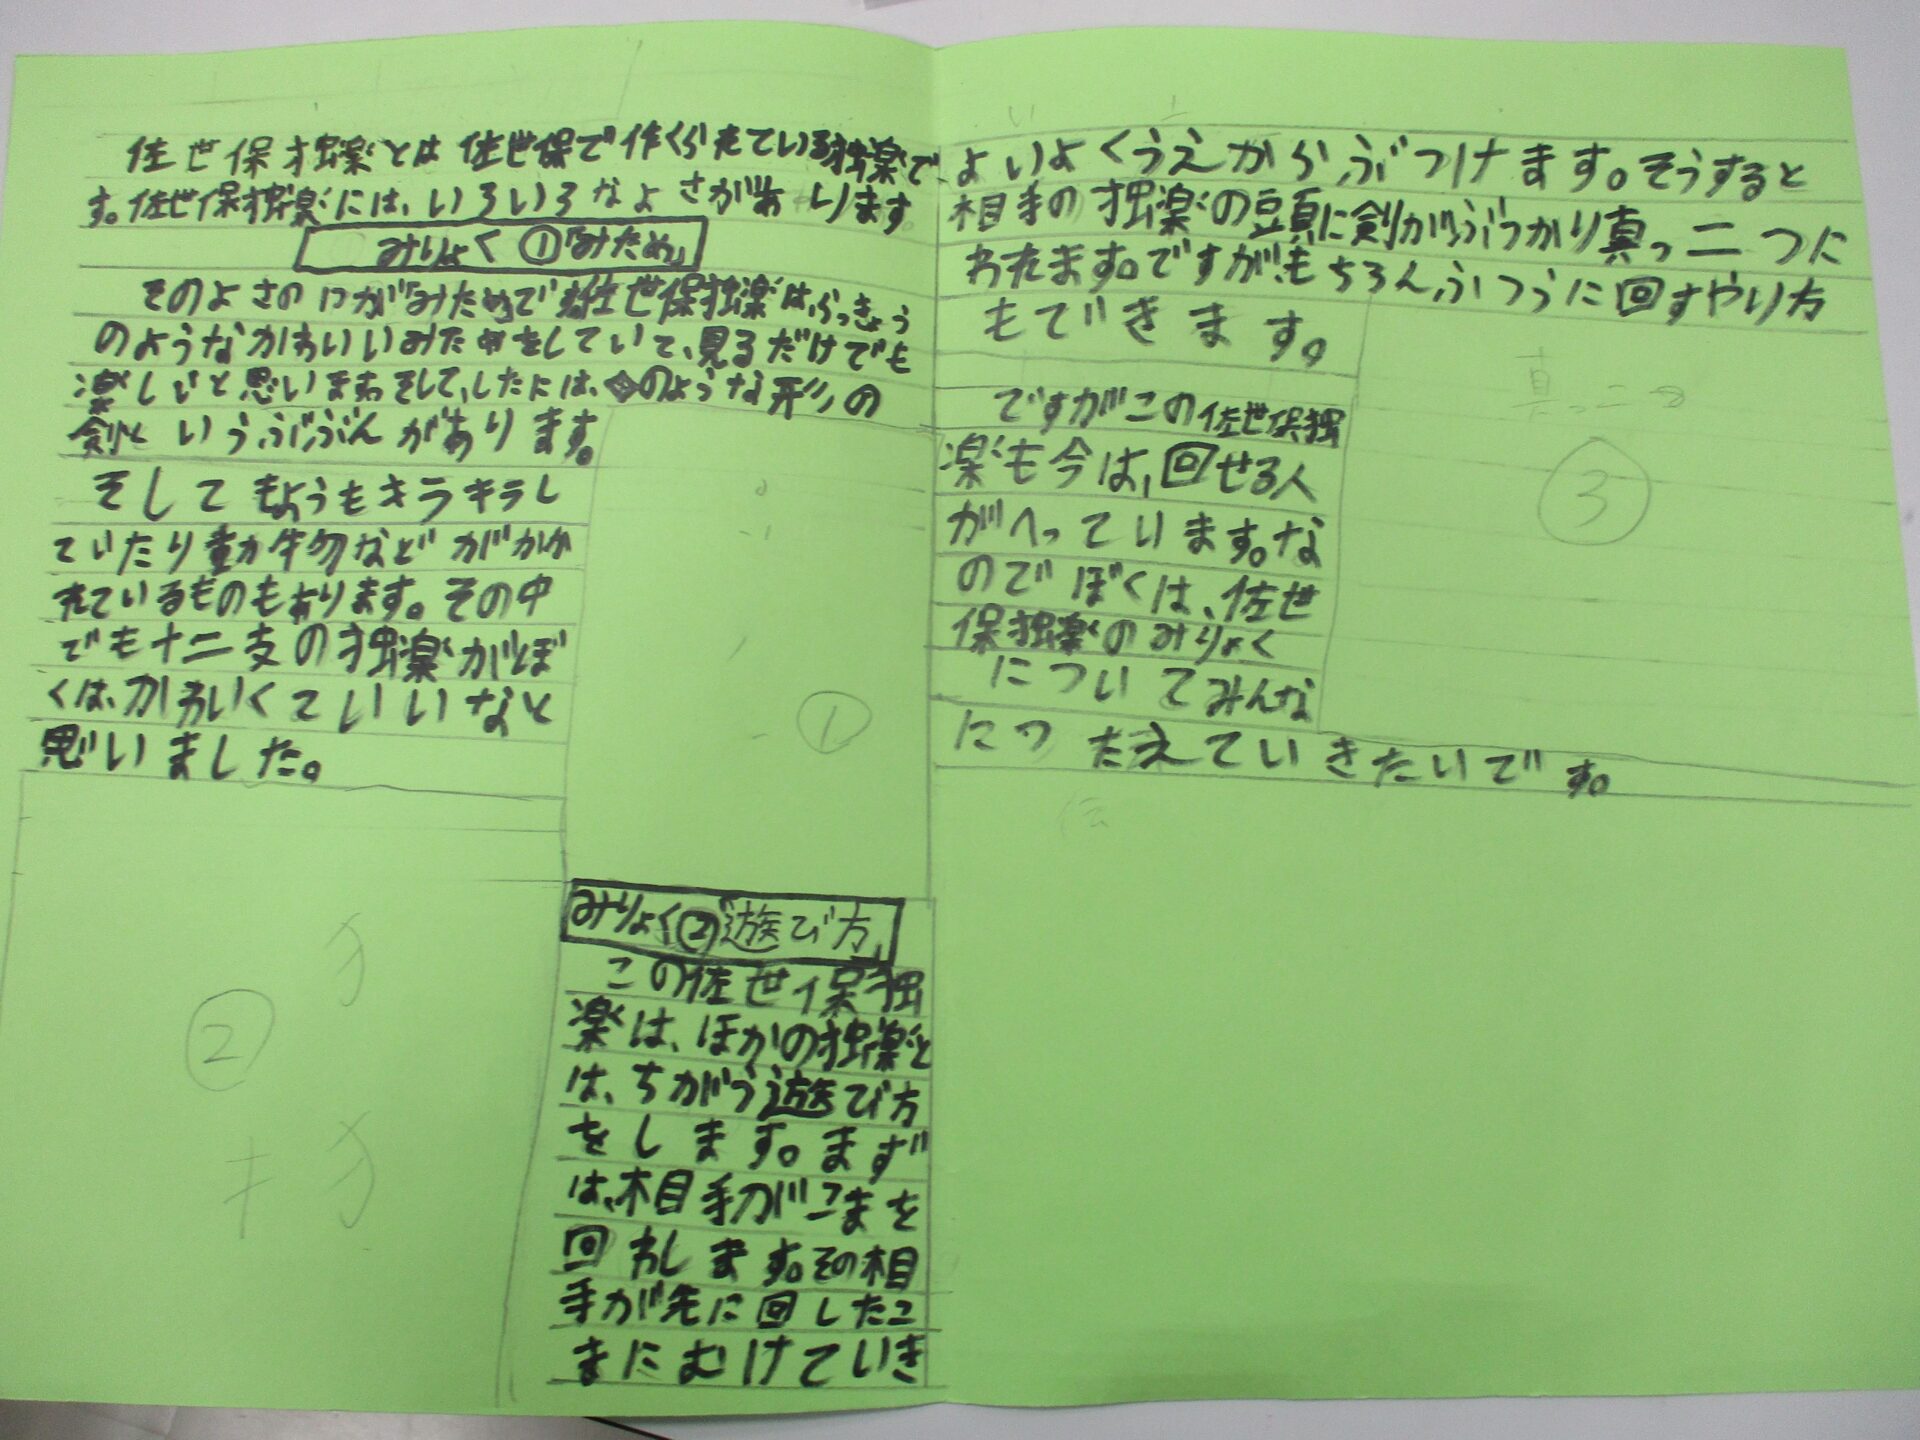 佐世保独楽とは佐世保で作くられている独楽で
す。佐世保独楽には、いろいろなよさがあります
みりょく①「みため」
そのよさの1つが「みためで 佐世保独楽は、らっきょう
のようなかわいいみためをしていて、見るだけでも
楽しいと思います そして、したには、のような形の
剣というぶぶんがあります。
そしてもようもキラキラし
ていたり動物などがかか
れているものもあります。その中
でも十二支の独楽がぼ
くは、かわいくていいなと
思いました。
①
②
みりょく②「遊び方」
この佐世保独
楽は、ほかの独楽と
は、ちがう遊び方
をします。まず
は、相手がこまを
回わします。その相
手が先に回したこ
まにむけていき
よいよくうえからぶつけます。そうすると
相手の独楽の頭に剣がぶつかり真っ二つに
われます。ですが、もちろんふつうに回すやり方
もできます。
ですがこの佐世保独
楽も今は、回せる人
がへっています。な
のでぼくは、佐世
保独楽のみりょく
についてみんな
につたえていきたいです。
真っ二つ
③